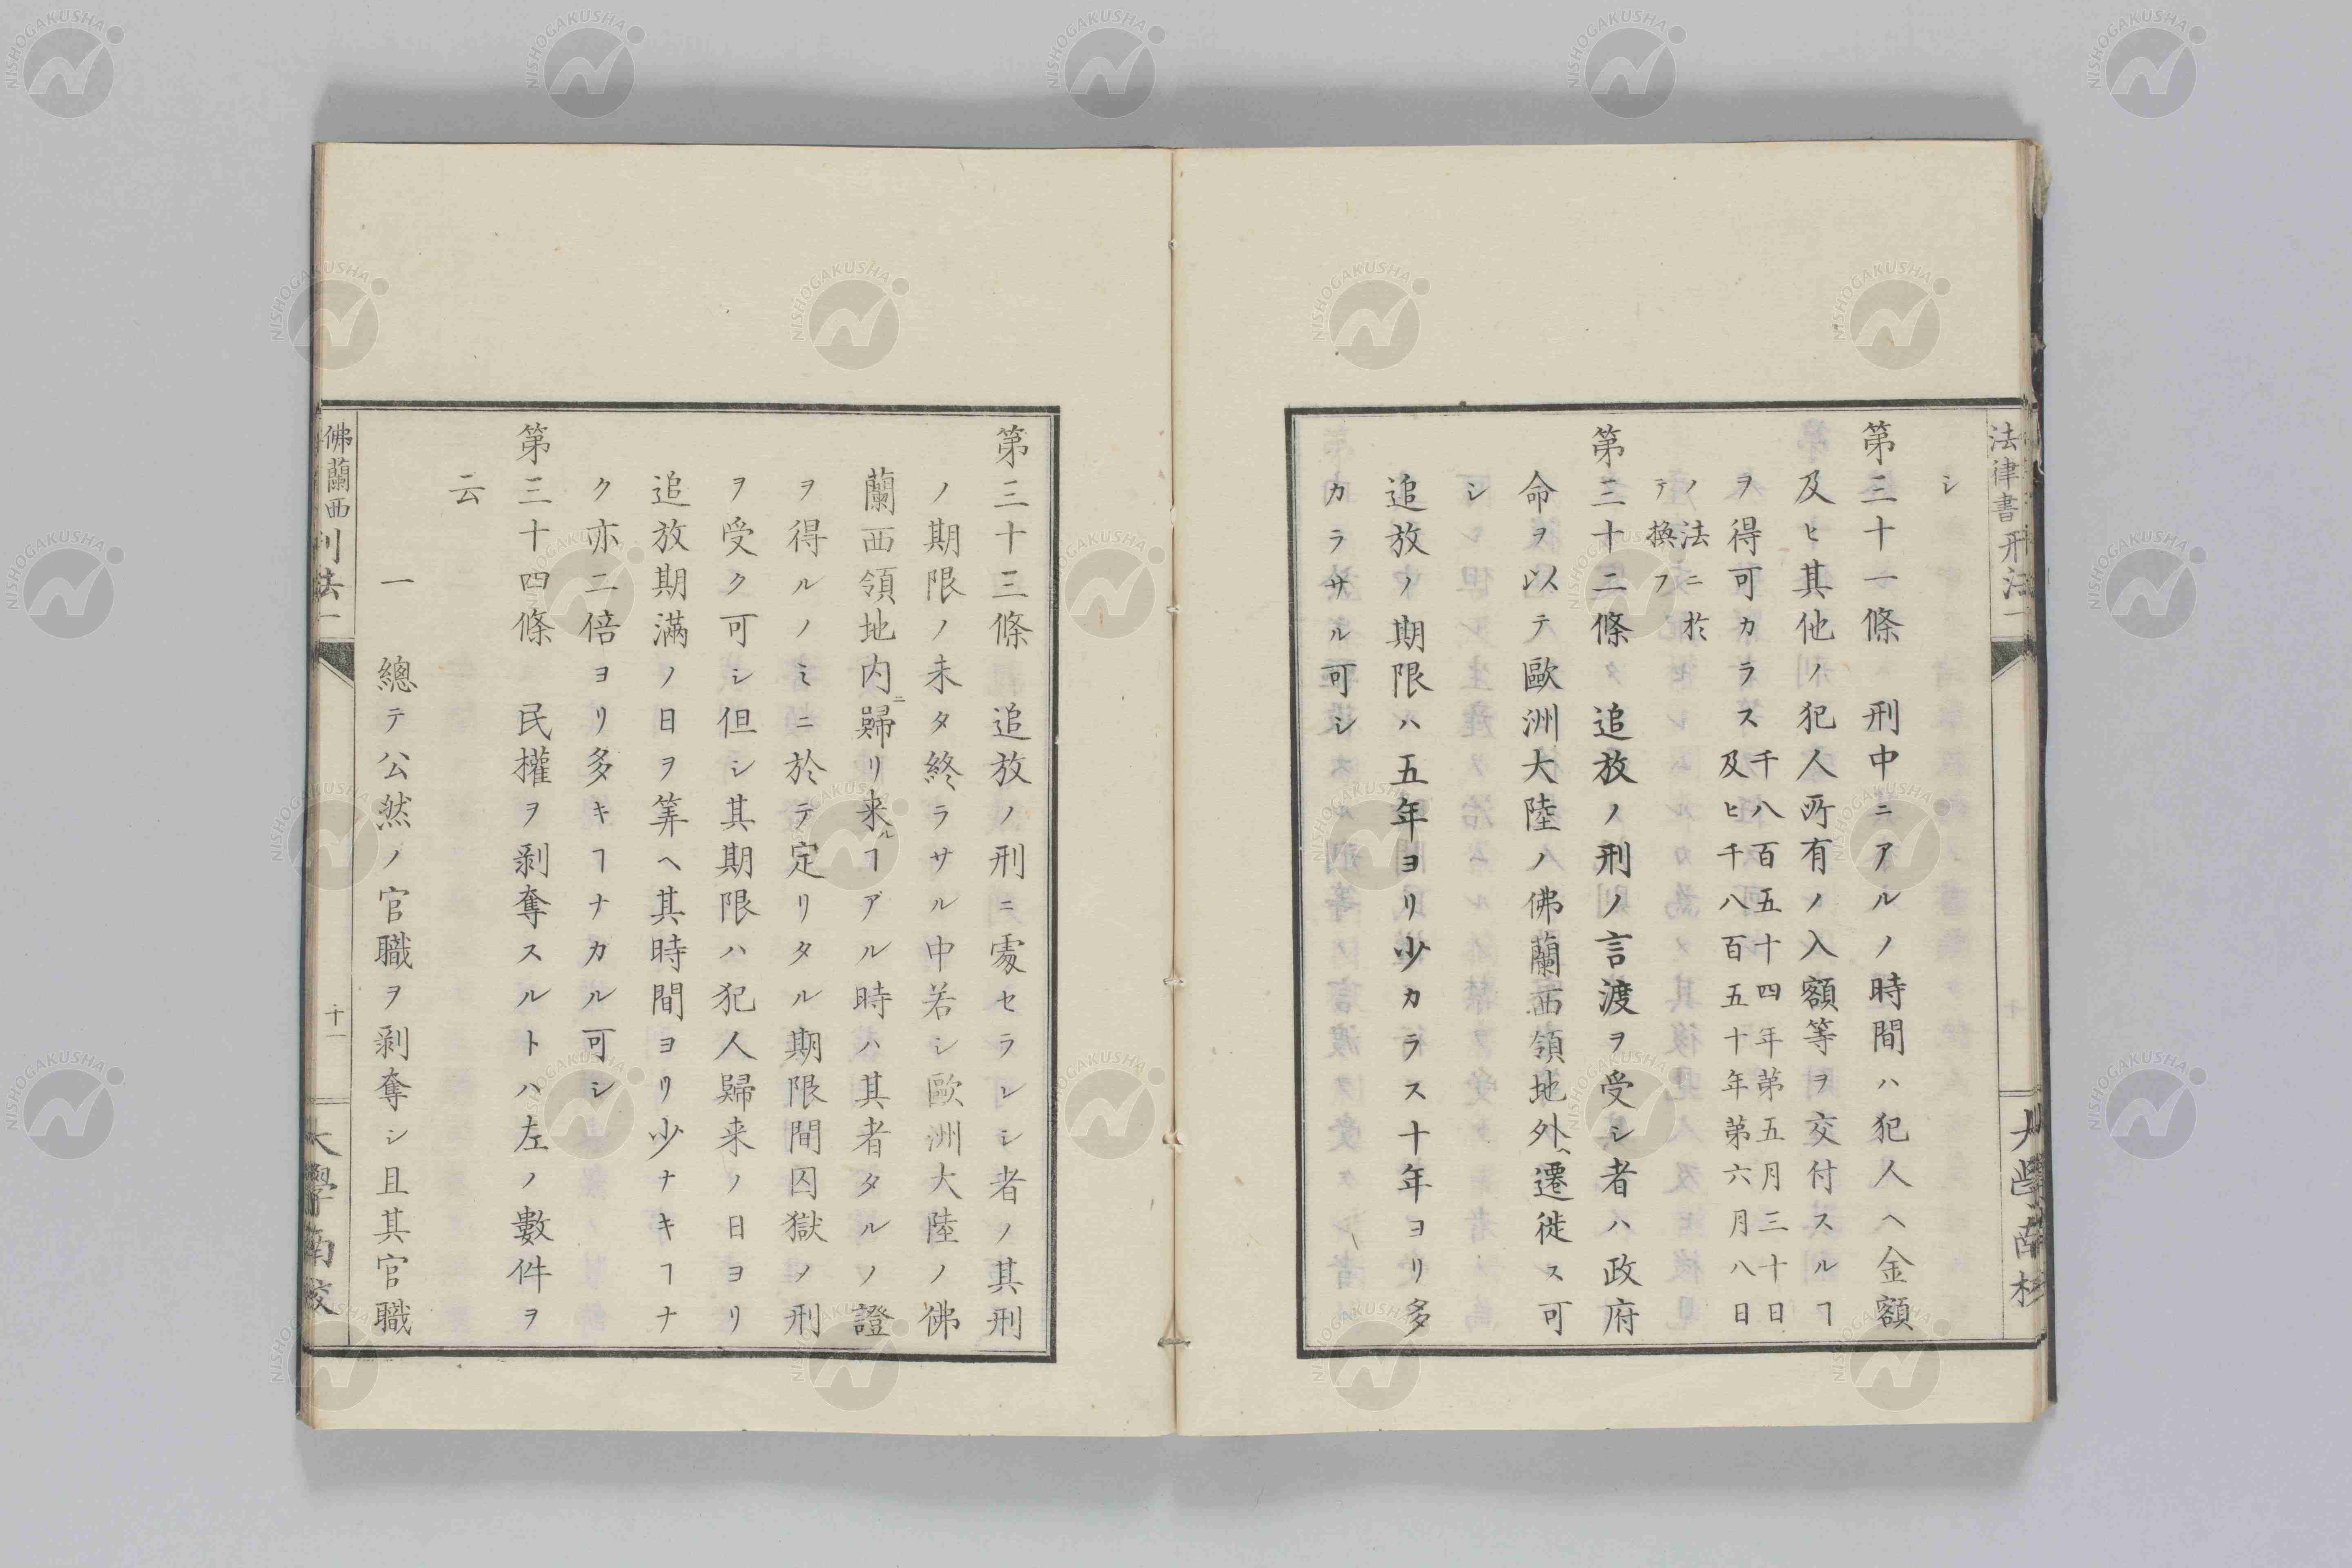 シ
第三十一條 刑中ニアルノ時間ハ犯人ヘ金額
及ヒ其他ノ犯人所有ノ入額等ヲ交付スルヿ
ヲ得可カラス千八百五十四年第五月三十日
及ヒ千八百五十年第六月八日
ノ法ニ於
テ換フ
第三十二條 追放ノ刑ノ言渡ヲ受シ者ハ政府
命ヲ以テ歐洲大陸ノ佛蘭西領地外ヘ遷徙ス可
シ
追放ノ期限ハ五年ヨリ少カラス十年ヨリ多
カラサル可シ
第三十三條 追放ノ刑ニ處セラレシ者ノ其刑
ノ期限ノ未タ終ラサル中若シ歐洲大陸ノ佛
蘭西領地内ニ歸リ来ルヿアル時ハ其者タルノ證
ヲ得ルノミニ於テ定リタル期限間囚獄ノ刑
ヲ受ク可シ但シ其期限ハ犯人歸来ノ日ヨリ
追放期滿ノ日ヲ筭ヘ其時間ヨリ少ナキヿナ
ク亦二倍ヨリ多キヿナカル可シ
第三十四條 民權ヲ剥奪スルトハ左ノ數件ヲ
云
一 總テ公然ノ官職ヲ剥奪シ且其官職
佛蘭西刑法一
十一
大學南校
法律書刑法一
大學南校
NISHOGAKUSHA